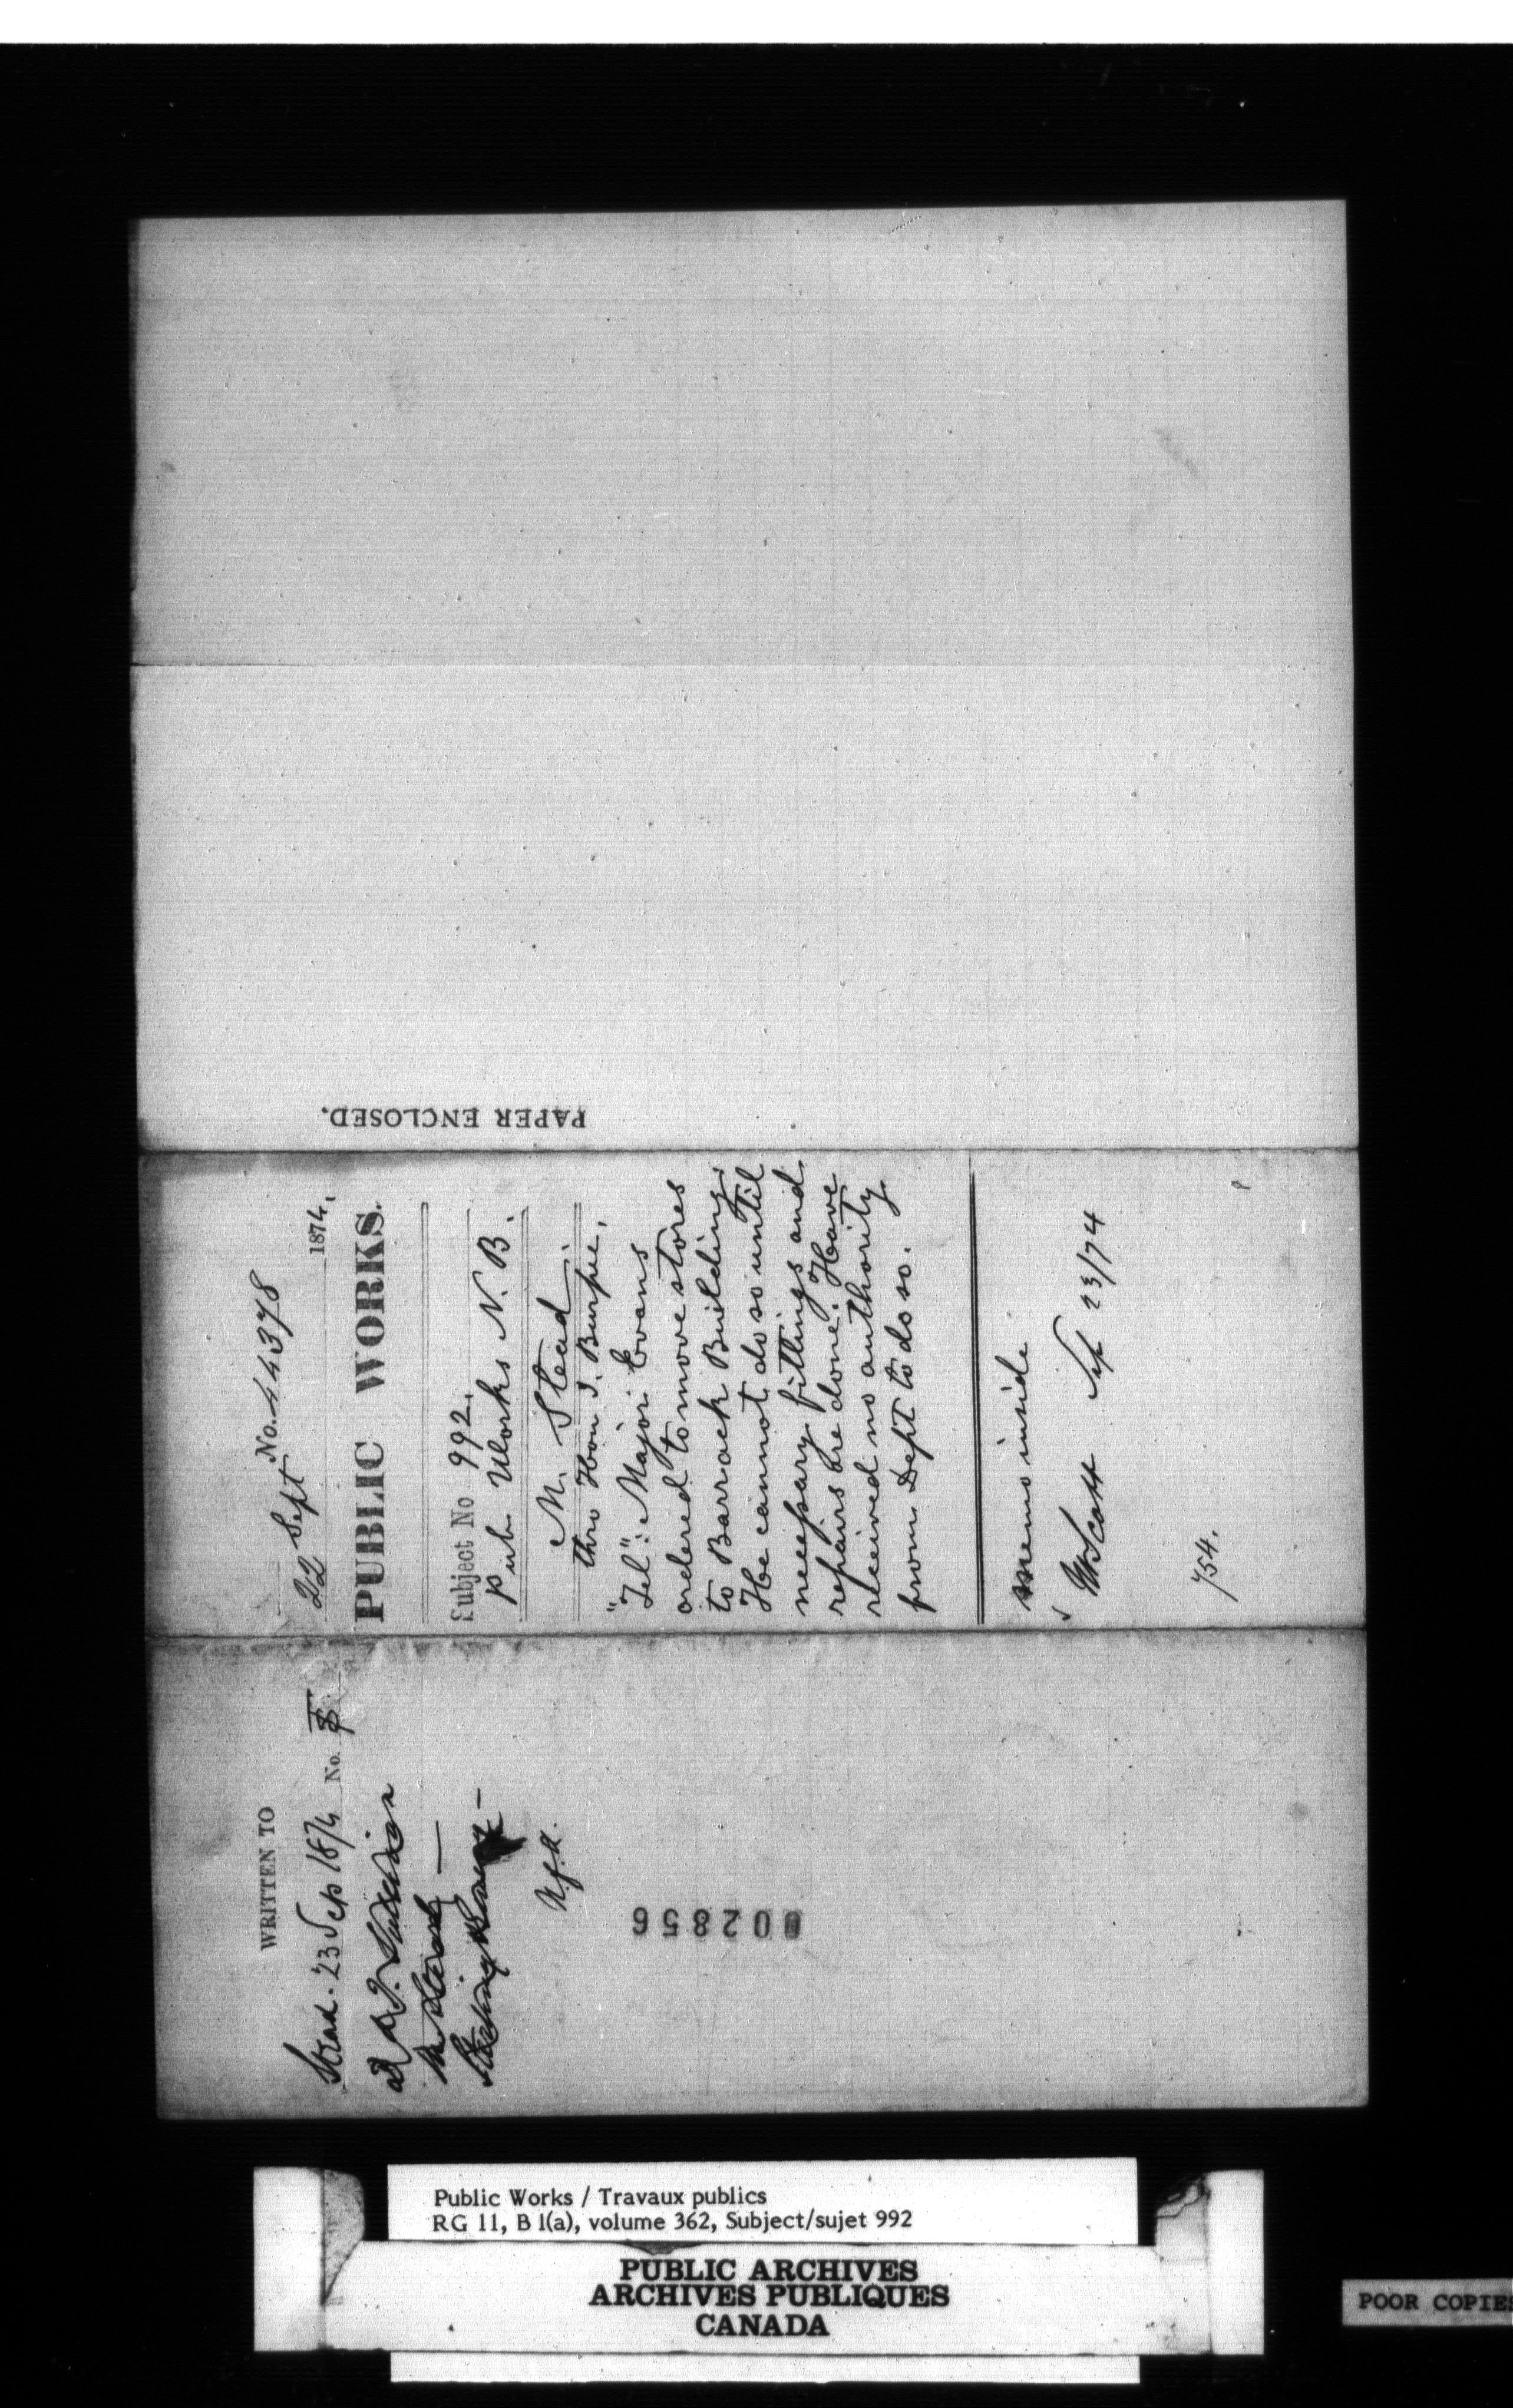 No. 44378
22 Sept 1874.
PUBLIC WORKS.
Subject No 992.
Pub Works N. B.
M. Stead
thro Hon I. Burpee.
"Tel": Major Evans
ordered to move stores
to Barrack Building.
He cannot do so until
necessary fittings and
repairs are done. Have
received no authority
from Dept to do so.
Memo inside
W Scott Sep 23/74
754.
PAPER ENCLOSED.
WRITTEN TO
Stead. 23 Sep 1874 No.
002856
Public Works / Travaux publics
RG 11, B 1(a), volume 362, Subject/sujet 992
PUBLIC ARCHIVES
ARCHIVES PUBLIQUES
CANADA
POOR COPIES